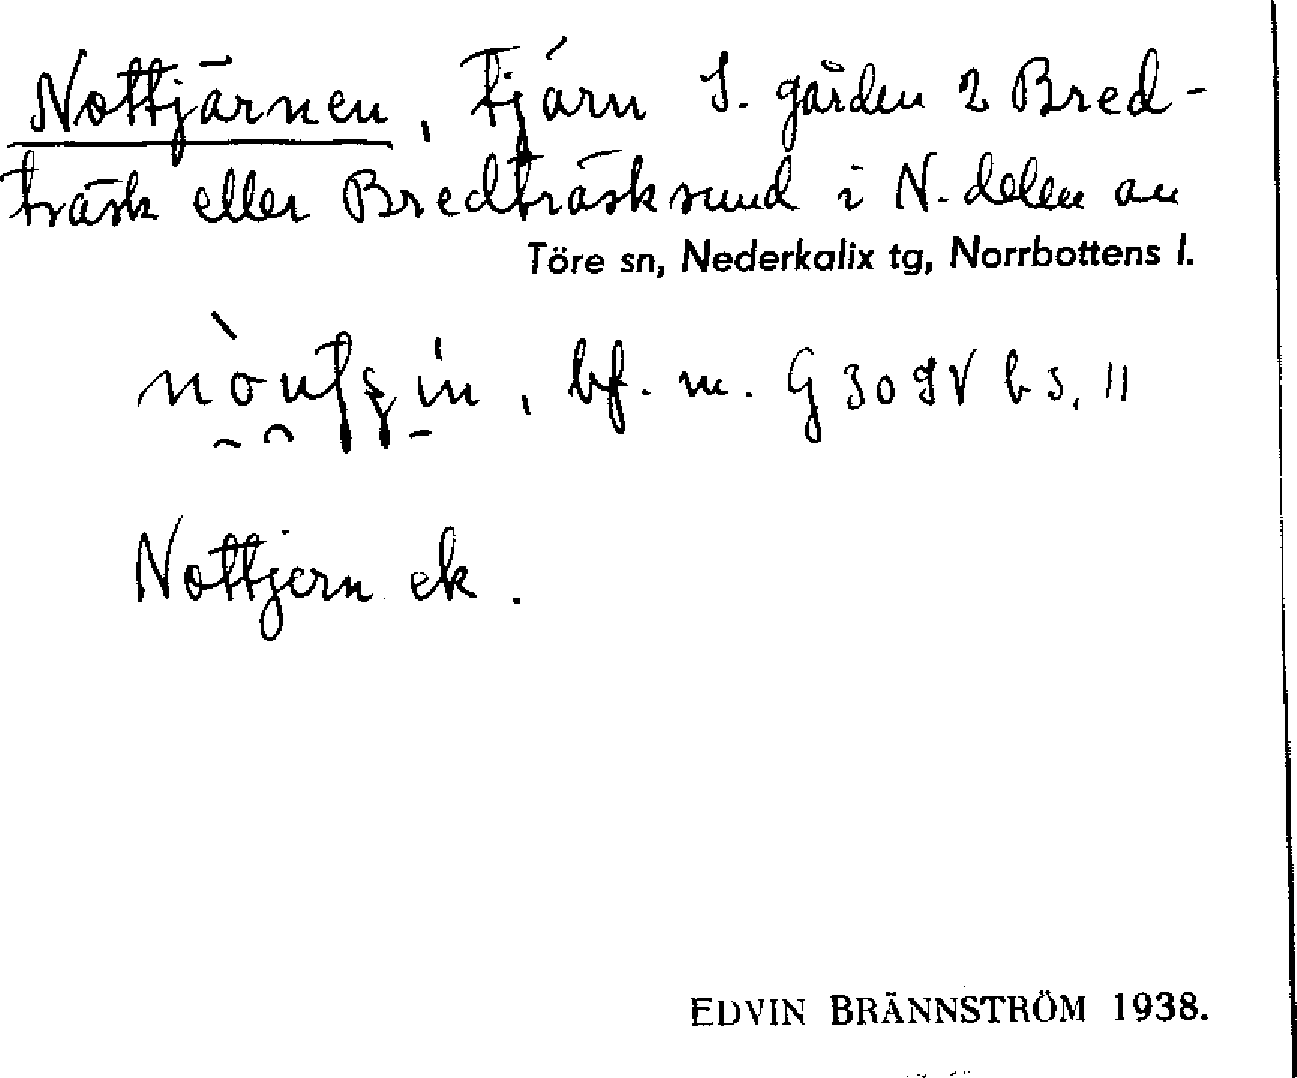 Nottjärnen, Tjärn S. gården 2 Bred-
träsk eller Bredträsksund i N. delen av
Töre sn, Nederkalix tg, Norrbottens l.
bf. m. G 30 9V b s. 11
Nottjern ek.
EDVIN BRÄNNSTRÖM 1938.